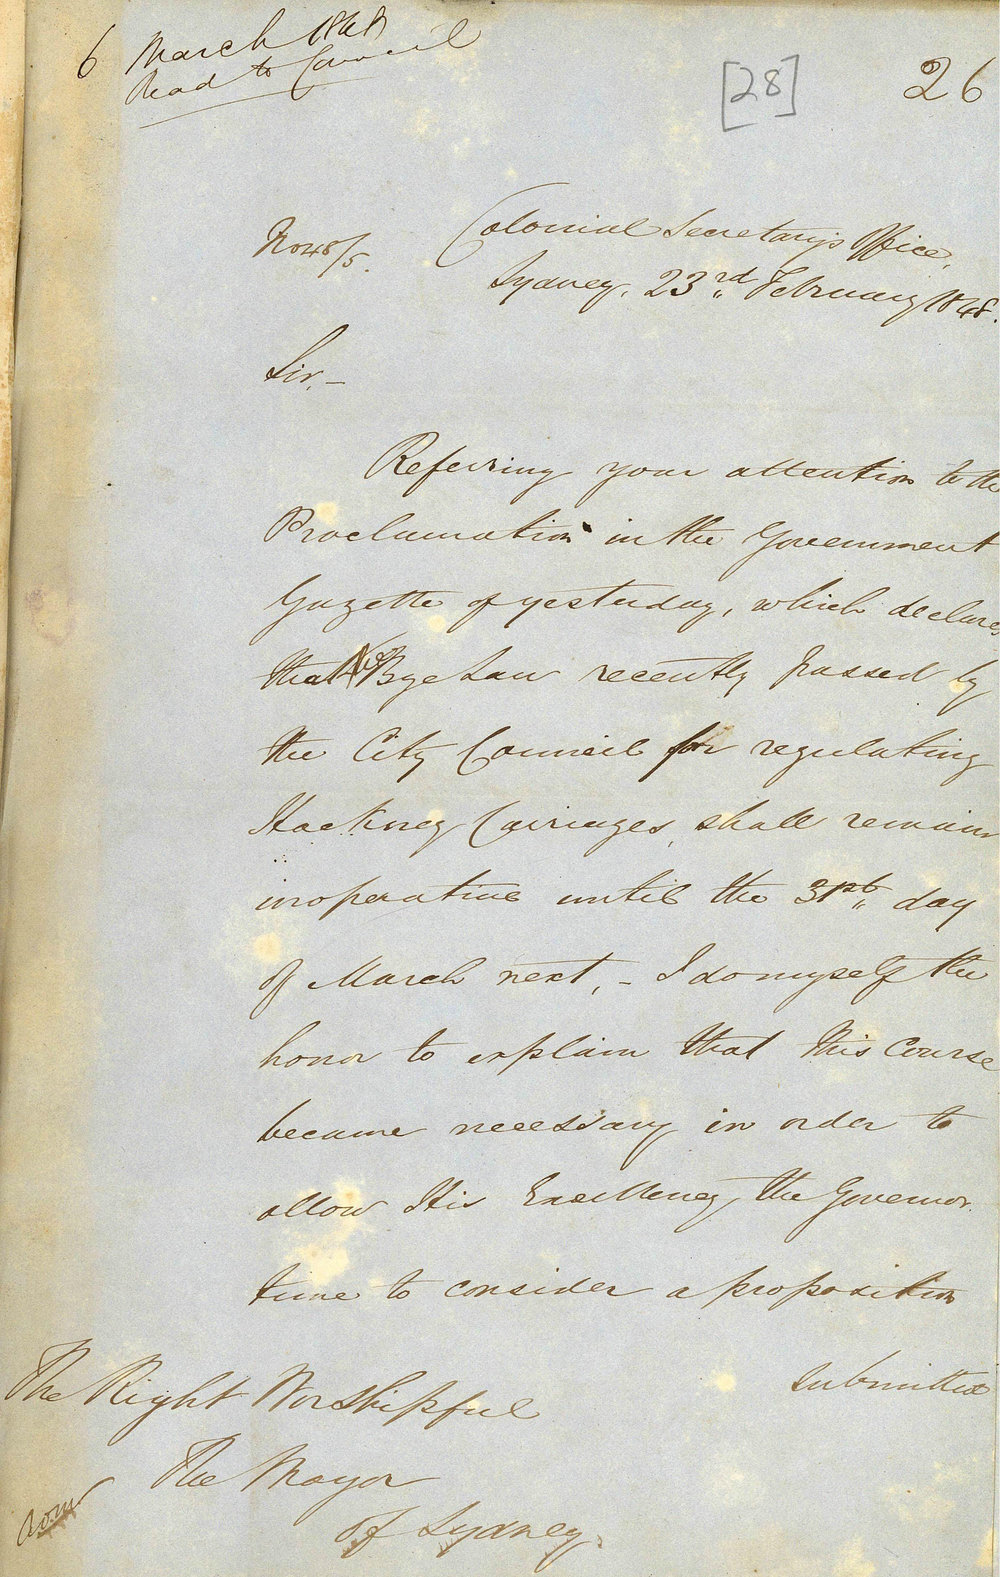 6 March 1848
Read to Council
[28]
26
No 48/5.
Colonial Secretary's Office,
Sydney, 23rd February 1848.
Sir,—
Referring your attention to the
Proclamation in the Government
Gazette of yesterday, which declares
that the Bye Law recently passed by
the City Council for regulating
Hackney Carriages, shall remain
inoperative until the 31st day
of March next, - I do myself the
honor to explain that this Course
became necessary in order to
allow His Excellency, the Governor
time to consider a proposition
submitted
The Right Worshipful
The Mayor
of Sydney.